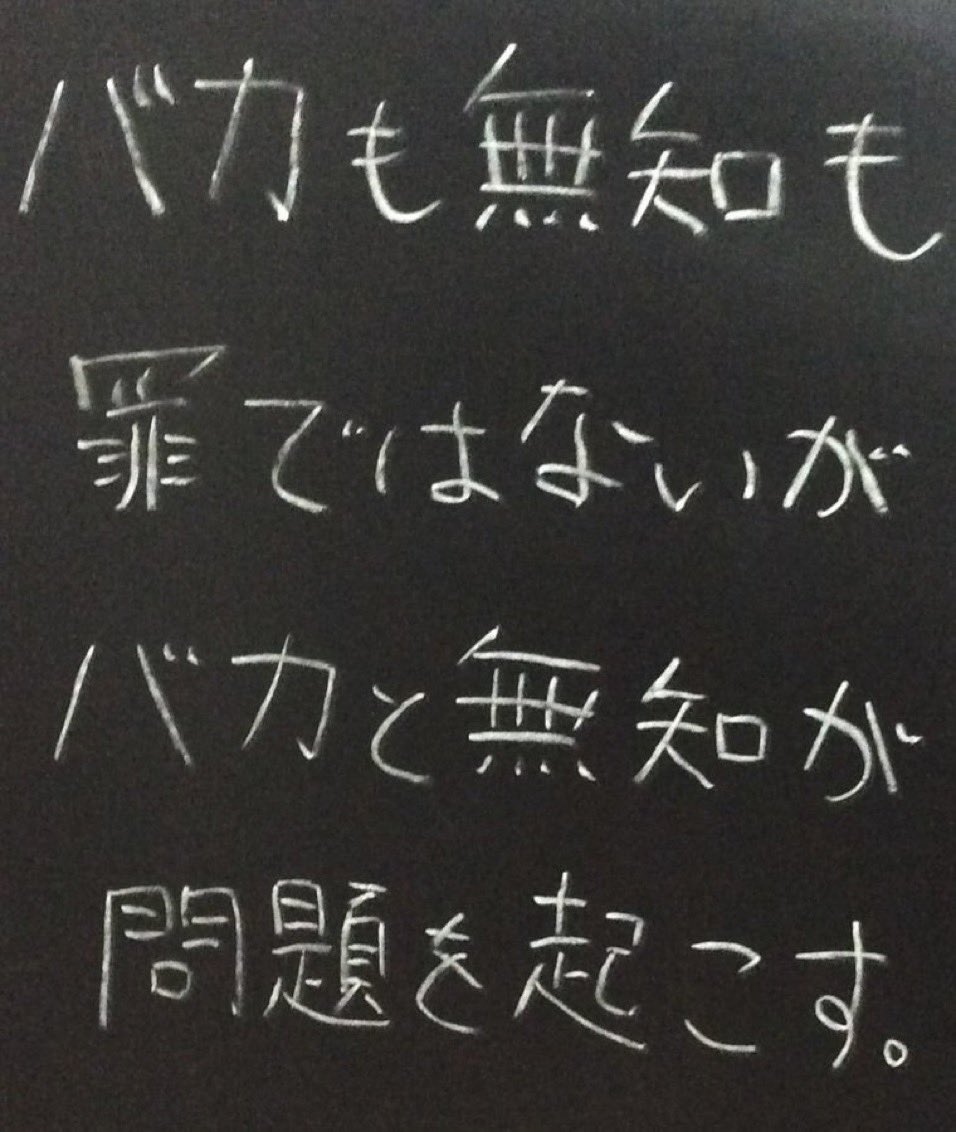 バカも無知も
罪ではないが
バカと無知が
問題を起こす。